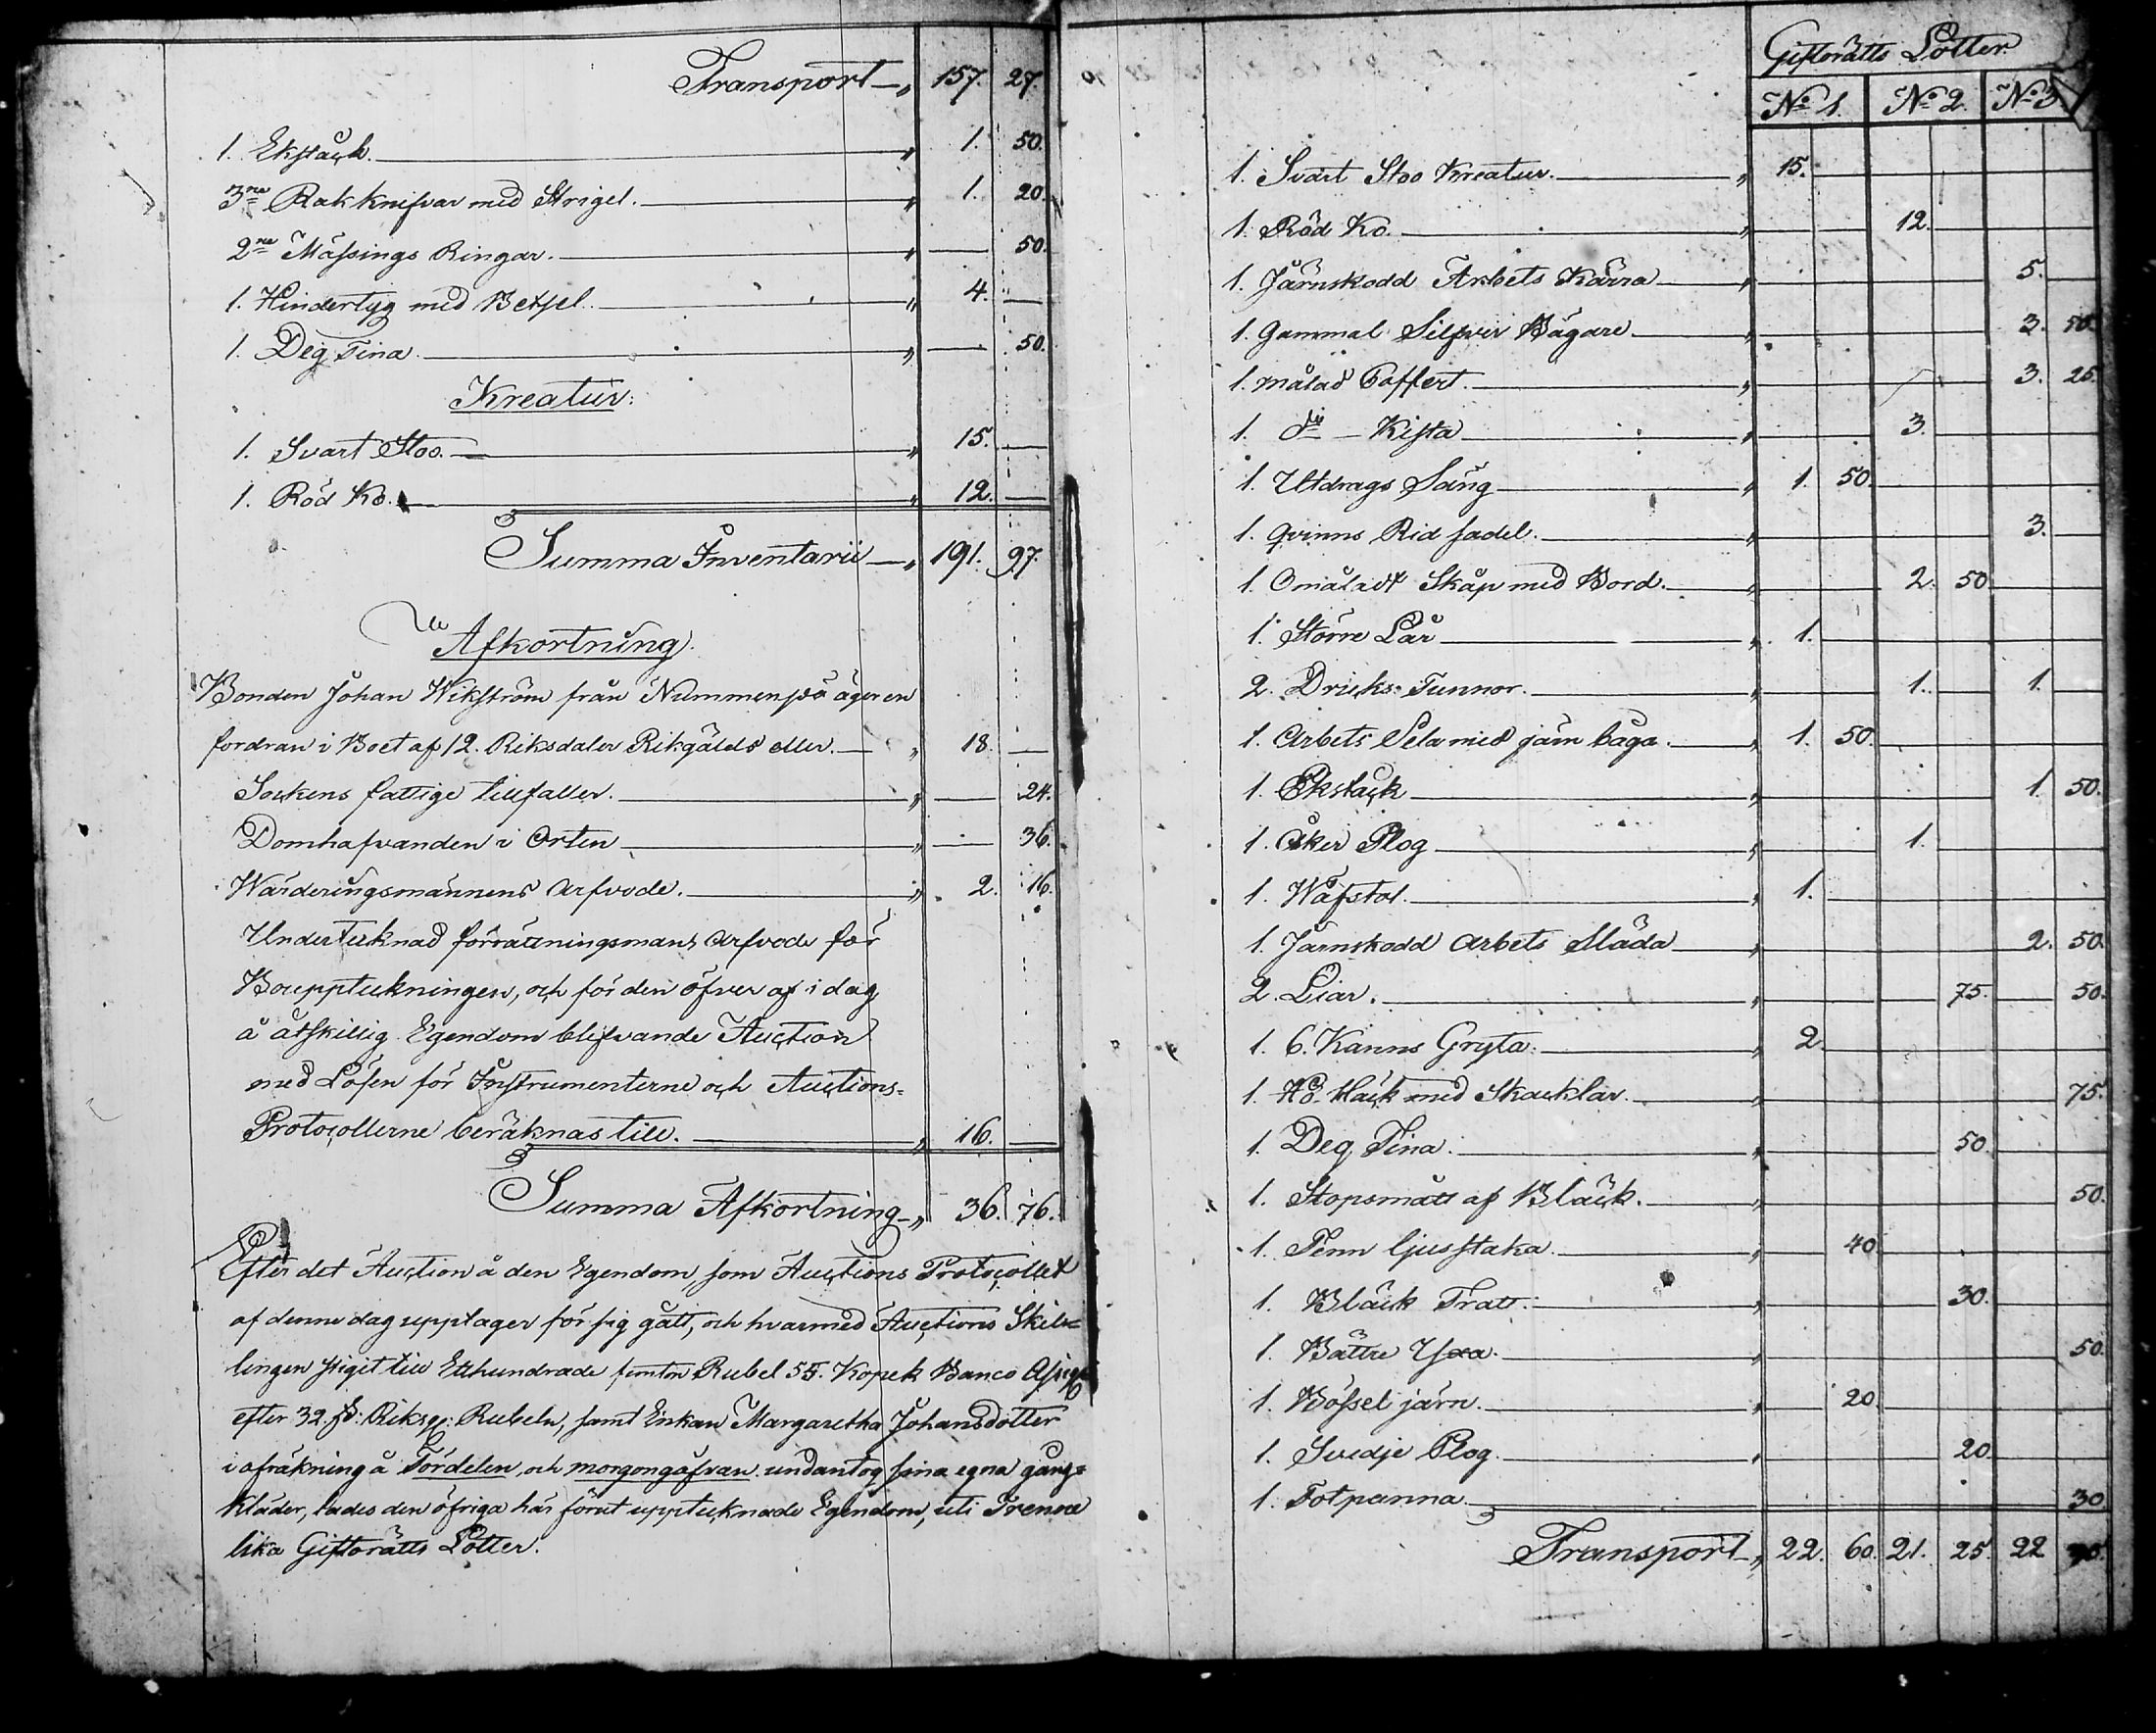 Transport — „ 157. 27.
1. Ekstäck. „ 1. 50.
3ne Rakknifvar med Strigel. „ 1. 20.
2ne Mässings Ringar. „ — 50.
1. Hindertyg med Betsel. „ 4. —
1. Deg Tina. „ — 50.
Kreatur:
1. Svart Stoo. „ 15. —
1. Röd Ko. „ 12. —
Summa Inventarii — „ 191. 97.
Afkortning.
Bonden Johan Wikström från äger en
fordran i Boet af 12. Riksdaler Rikgälds eller. — „ 18. —
Sockens fattige tillfaller. „ — 24.
Domhafvanden i Orten „ — 36.
Wärderingsmännens Arfvode. „ 2. 16.
Undertecknad förrättningsmans Arfvode för
Bouppteckningen, och för den öfver af i dag
å åtskillig Egendom blifvande Auction
med Lösen för Instrumenterne och Auctions=
Protocollerne beräknas till. „ 16. —
Summa Afkortning — „ 36. 76.
Efter det Auction å den Egendom, som Auctions Protocollet
af denne dag upptager för sig gått, och hvarmed Auctions Skil=
lingen stigit till Etthundrade femton Rubel 55. Kopek Banco
efter 32. Rubeln, samt Enkan Margaretha Johansdotter
i afräkning å Fördelen, och morgongåfvan undantog sina egna gång=
kläder, lades den öfriga här förut upptecknade Egendom, uti Trenne
lika Giftorätts Lotter.
Giftorätts Lotter.
No 1. No 2. No 3.
1. Svart Stoo Kreatur. „ 15.
1. Röd Ko. „ 12.
1. Järnskodd Arbets Kärra „ 5.
1. Gammal Silfver Bägare „ 3. 50.
1. målad Coffert. „ 3. 25.
1. do — Kista „ 3.
1. Utdrags Säng „ 1. 50.
1. Qvinns Rid sadel. „ 3.
1. Omåladt Skåp med Bord. „ 2. 50
1. Större Lår „ 1.
2. Dricks Tunnor. „ 1. 1.
1. Arbets Sela med järn båga. „ 1. 50.
1. Ekstäck „ 1. 50.
1. Åker Plog „ 1.
1. Wäfstol. „ 1.
1. Järnskodd Arbets Släda „ 2. 50.
2. Liar. „ 75. 50.
1. 6. Kanns Gryta. „ 2.
1. Hö Häck med Skacklar. „ 75.
1. Deg Tina. „ 50.
1. Stopsmått af Bläck. „ 50.
1. Tenn ljusstaka. „ 40.
1. Bläck Tratt. „ 30.
1. Bättre Yxa. „ 50.
1. Bössel järn. „ 20.
1. Svedje Plog. „ 20.
1. Fotpanna. „ 30
Transport „ 22. 60. 21. 25. 22